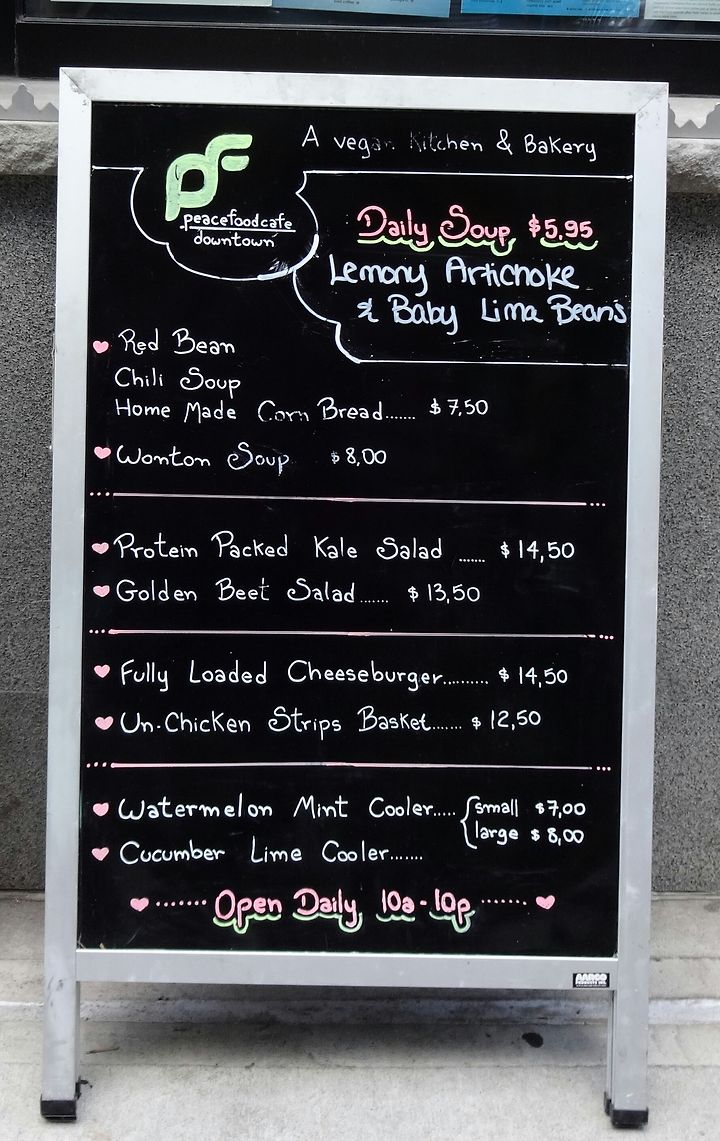 A vegan Kitchen & Bakery
PF
peacefoodcafe
downtown
Daily Soup $5.95
Lemony Artichoke
& Baby Lima Beans
Red Bean
Chili Soup
Home Made Corn Bread....... $7,50
Wonton Soup $8,00
Protein Packed Kale Salad ....... $14,50
Golden Beet Salad....... $13,50
Fully Loaded Cheeseburger.......... $14,50
Un-Chicken Strips Basket....... $12,50
Watermelon Mint Cooler..... small $7,00
large $8,00
Cucumber Lime Cooler.......
Open Daily 10a-10p
AARCO
PRODUCTS INC.